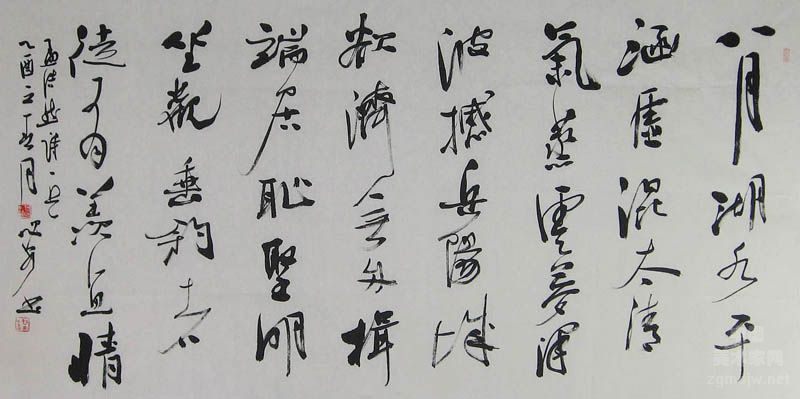 八月湖水平
涵虚混太清
氣蒸雲夢澤
波撼岳陽城
欲濟無舟楫
端居耻聖明
坐觀垂釣者
徒有羡鱼情
孟浩然詩一首
乙酉之春月
美术家网
zgmsjw.net